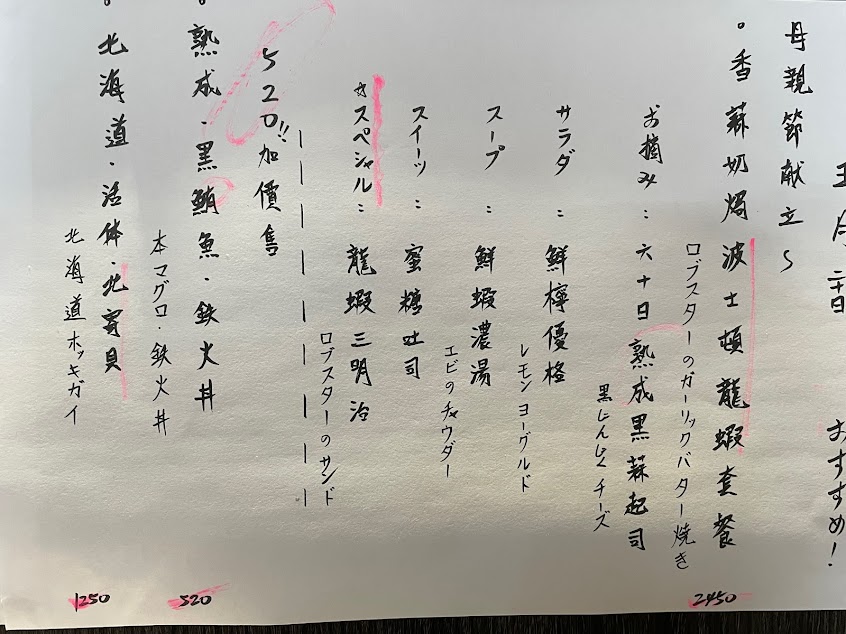 五月二十日 おすすめ!
母親節献立~
。香蒜奶焗波士頓龍蝦套餐 2450
ロブスターのガーリックバター焼き
お摘み:六十日熟成黒蒜起司
黒にんにくチーズ
サラダ:鮮檸優格
レモンヨーグルド
スープ:鮮蝦濃湯
エビのチャウダー
スイーツ:蜜糖吐司
☆スペシャル:龍蝦三明治
ロブスターのサンド
520!!加價售
。熟成・黒鮪魚・鉄火丼 520
本マグロ・鉄火丼
。北海道・活体・北寄貝 1250
北海道ホッキガイ